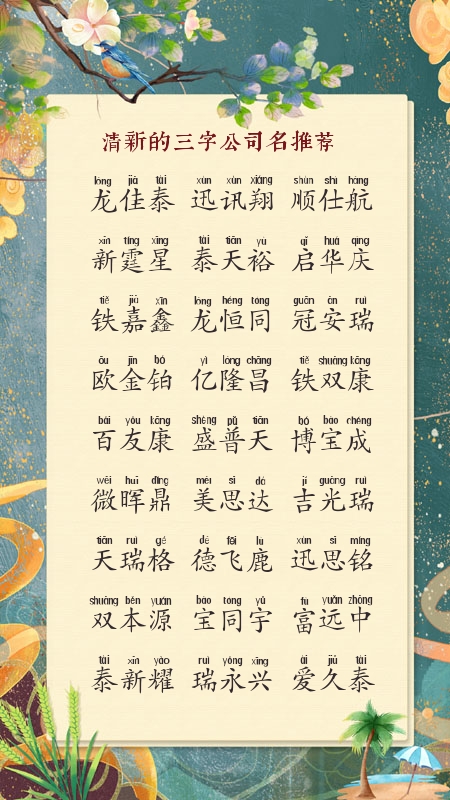 清新的三字公司名推荐
lóng jiā tài xùn xùn xiáng shùn shì háng
龙佳泰 迅讯翔 顺仕航
xīn tíng xīng tài tiān yù qǐ huá qìng
新霆星 泰天裕 启华庆
tiě jiā xīn lóng héng tóng guān ān ruì
铁嘉鑫 龙恒同 冠安瑞
ōu jīn bó yì lóng chāng tiě shuāng kāng
欧金铂 亿隆昌 铁双康
bǎi yǒu kāng shèng pǔ tiān bó bǎo chéng
百友康 盛普天 博宝成
wēi huī dǐng měi sī dá jí guāng ruì
微晖鼎 美思达 吉光瑞
tiān ruì gé dé fēi lù xùn sī míng
天瑞格 德飞鹿 迅思铭
shuāng běn yuán bǎo tóng yǔ fù yuǎn zhōng
双本源 宝同宇 富远中
tài xīn yào ruì yǒng xīng ài jiǔ tài
泰新耀 瑞永兴 爱久泰